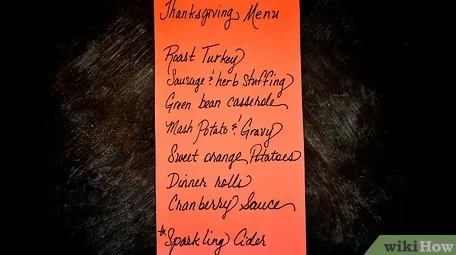 Thanksgiving Menu
Roast Turkey
Sausage & herb Stuffing
Green bean casserole
Mash Potato & Gravy
Sweet orange Potatoes
Dinner rolls
Cranberry Sauce
*Sparkling Cider
wikiHow